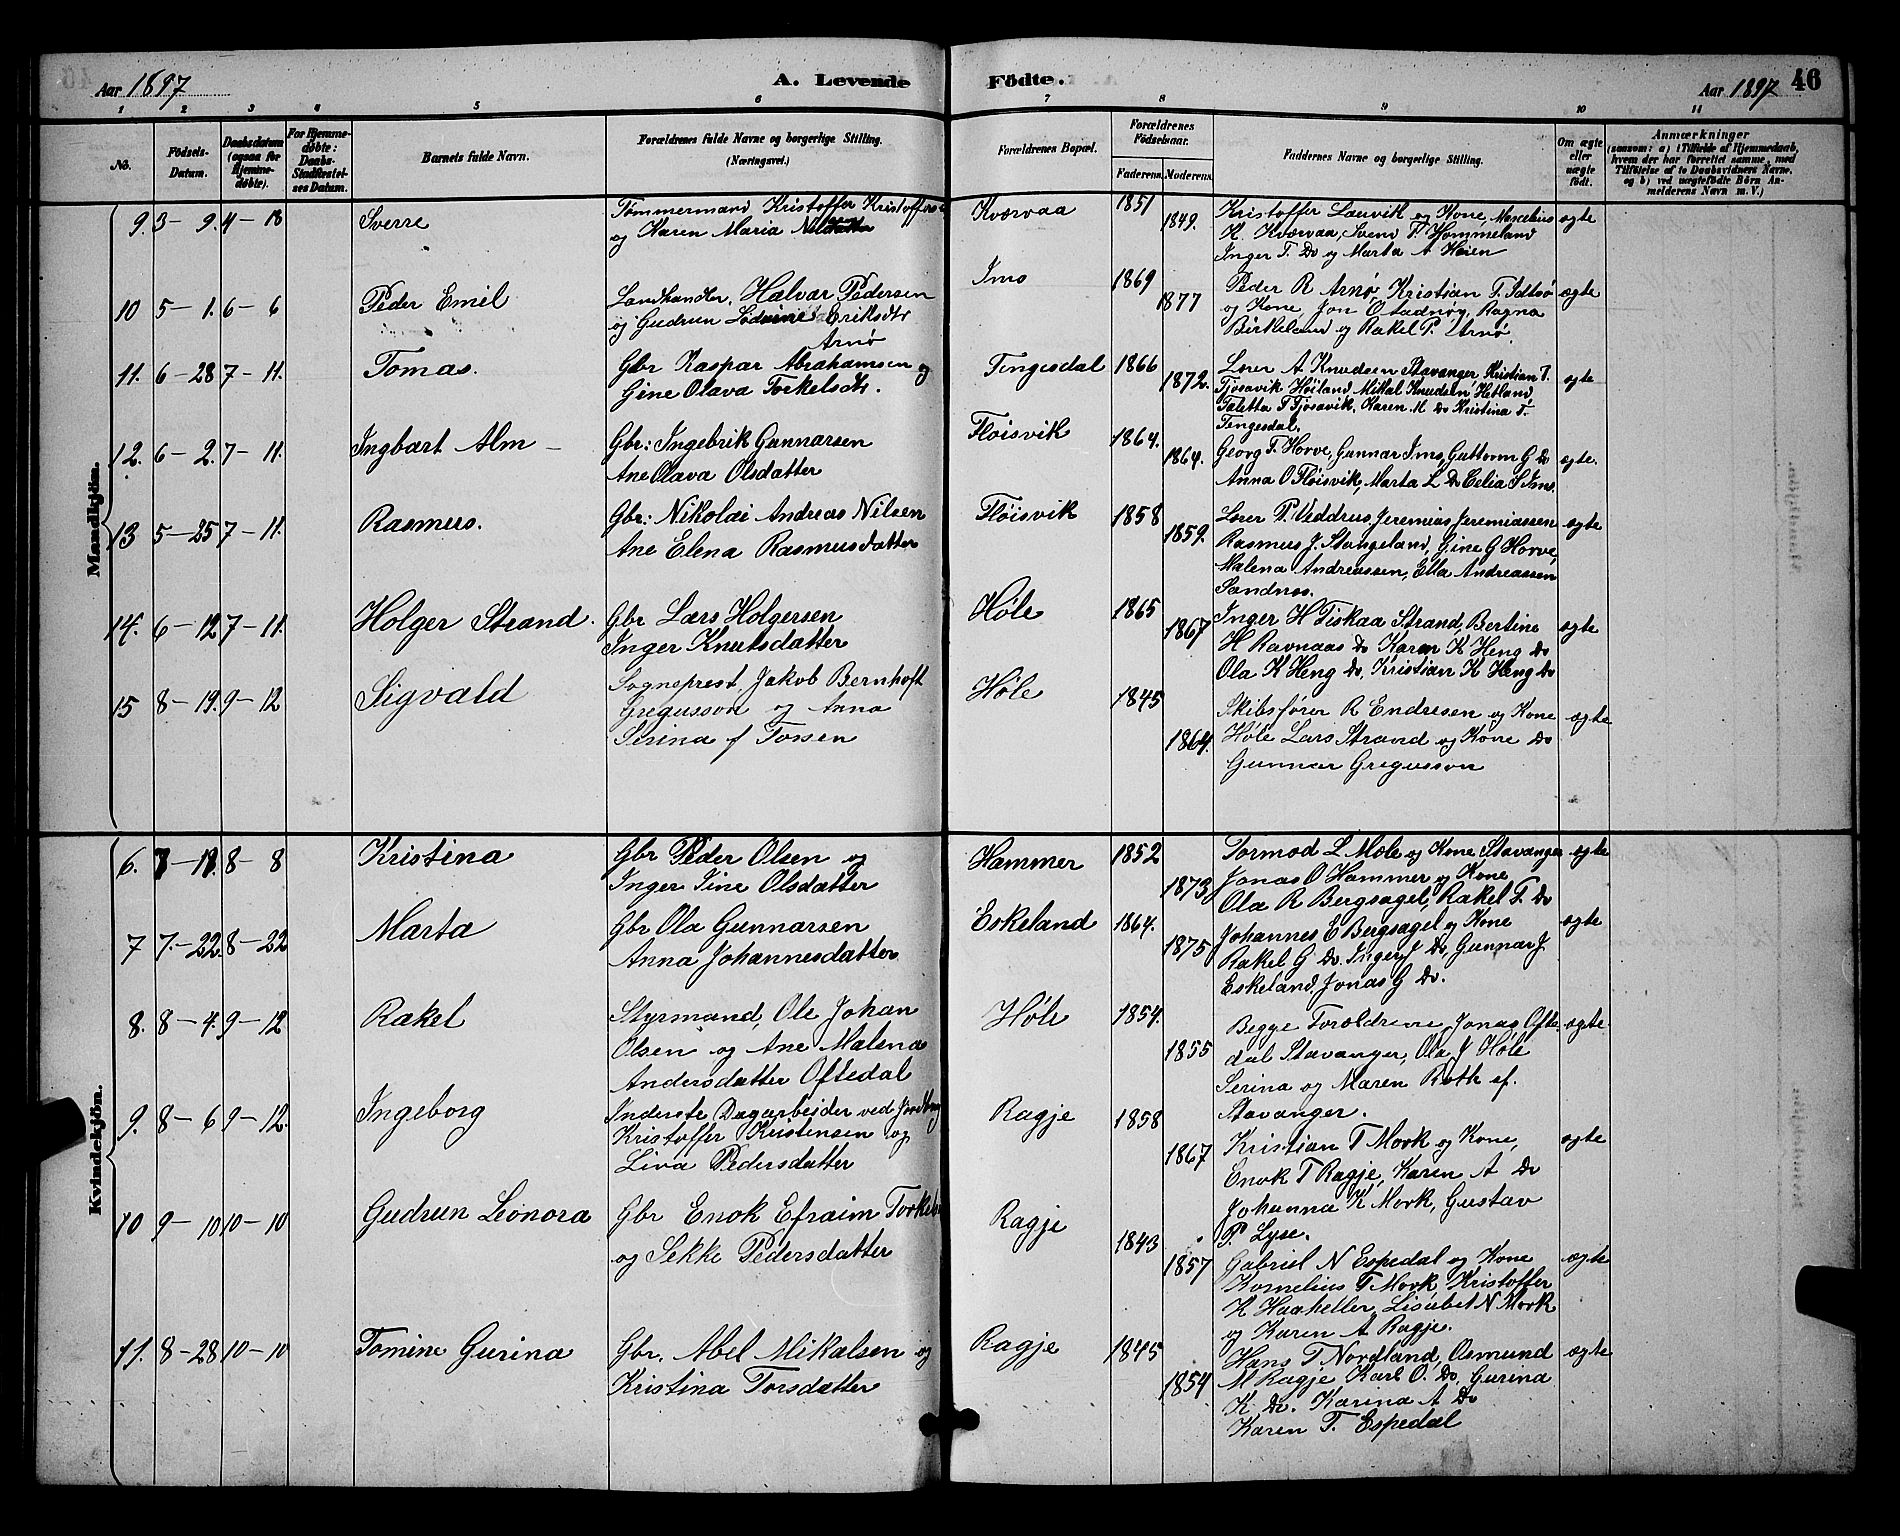 Aar 1897 A. Levende Födte. Aar 1897 46
1 2 3 4 5 6 7 8 9 10 11
No. Födsels-Datum. Daabsdatum (ogsaa for Hjemmedöbte). For Hjemmedöbte: Daabs-Stadfæstelses Datum. Barnets fulde Navn. Forældrenes fulde Navne og borgerlige Stilling. (Næringsvei.) Forældrenes Bopæl. Forældrenes Födselsaar. Faderens. Moderens. Faddernes Navne og borgerlige Stilling. Om ægte eller uægte födt. Anmærkninger (saasom: a) i Tilfælde af Hjemmedaab, hvem der har forrettet samme, med Tilföielse af to Daabsvidners Navne, og b) ved uægtefödte Börn Anmelderens Navn m. V.)
Mandkjön.
9. 3 – 9. 4 – 18 Sverre Tømmermand Kristoffer Kristoffers Kværvaa 1851 Kristoffer Lauvik og Kone, ægte
og Karen Maria 1849. K. Kværvaa, Svend T. Hommeland
Inger T. Do og Marta A Høien
10 5 – 1. 6 – 6 Peder Emil Landhandler. Halvar Pedersen Ims 1869 Peder R Arnø, Kristian T. ægte
og Gudrun Eriksdtr 1877 og Kone Jon O Ragna
Arnø Birkeland og Rakel P. Arnø.
11. 6 – 28 7 – 11. Tomas. Gbr Kaspar Abrahamsen og Tengesdal 1866 Lærer A Knudsen Stavanger, Kristian T. ægte
Gine Olava Torkelsdtr. 1872. Tjøsavik Høiland Mikal Knudsen Hetland
Taletta T Tjøsavik, Karen M Do Kristina T.
Tengesdal.
12. 6 – 2. 7 – 11. Ingbart Alm – Gbr: Ingebrik Gunnarsen Fløisvik 1864. Georg T. Horve, Gunnar Ims, Guttorm G Do ægte.
Ane Olava Olsdatter 1864. Anna O Fløisvik, Marta L Do Celia S Ims.
13 5 – 25 7 – 11. Rasmus. Gbr: Nikolai Andreas Nilsen Fløisvik 1858 Lærer P. Veddrus, Jeremias Jeremiassen ægte
Ane Elena Rasmusdatter 1859. Rasmus J. Stangeland, Gine G Horve,
Malena Andreassen, Ella Andreassen
Sandnes.
14. 6 – 12 7 – 11. Holger Strand. Gbr Lars Holgersen Høle 1865 Inger H Fiskaa Strand, Bertine ægte
Inger Knutsdatter 1867 H Ravnaas Do Karen K Heng Do
Ola K Heng Do, Kristian K Heng Do
15 8 – 19. 9 – 12 Sigvald Sogneprest Jakob Bernhoft Høle 1845 Skibsfører R Endresen og Kone ægte
Gregusson og Anna 1864. Høle Lars Strand og Kone Do
Serina f Torsen Gunnar Gregusson
Kvindekjön.
6. 8 – 8 Kristina Gbr Peder Olsen og Hammer 1852 Tormod L Mæle og Kone Stavanger ægte
Inger Tine Olsdatter 1873 Jonas O Hammer og Kone
Ola R Bergsagel, Rakel T. Do
7 7. – 22. 8 – 22 Marta Gbr Ola Gunnarsen Eskeland 1864. Johannes E Bergsagel og Kone ægte
Anna Johannesdatter 1875 Rakel G Do. Inger J Do, Gunnar J.
Eskeland, Jonas G Do.
8. 8 – 4. 9 – 12 Rakel Styrmand, Ole Johan Høle 1854. Begge Forældrene, Jonas Ofte- ægte.
Olsen og Ane Malena 1855 dal Stavanger, Ola J Høle
Andersdatter Oftedal Serina og Maren Roth ef.
Stavanger.
9. 8 – 6 9 – 12. Ingeborg Inderste Dagarbeider ved Jordbrug Ragje 1858 Kristian T Mork og Kone, ægte
Kristoffer Kristensen og 1867 Enok T Ragje, Karen A Do
Liva Pedersdatter Johanna K Mork, Gustav
P. Lyse.
10 9 – 10 10 – 10 Gudrun Leonora Gbr Enok Efraim Ragje 1843 Gabriel N Espedal og Kone ægte
og Sekke Pedersdatter 1857 Kornelius T Mork, Kristoffer
K Haaheller, Lisabet N Mork
og Karen A Ragje.
11. 8 – 28 10 – 10 Tomine Gurina Gbr. Abel Mikalsen og Ragje 1845 Hans T Nordland, Osmund ægte
Kristina Torsdatter 1854 M Ragje Karl O. Do, Gurina
K Do. Karina A Do
Karen T. Espedal